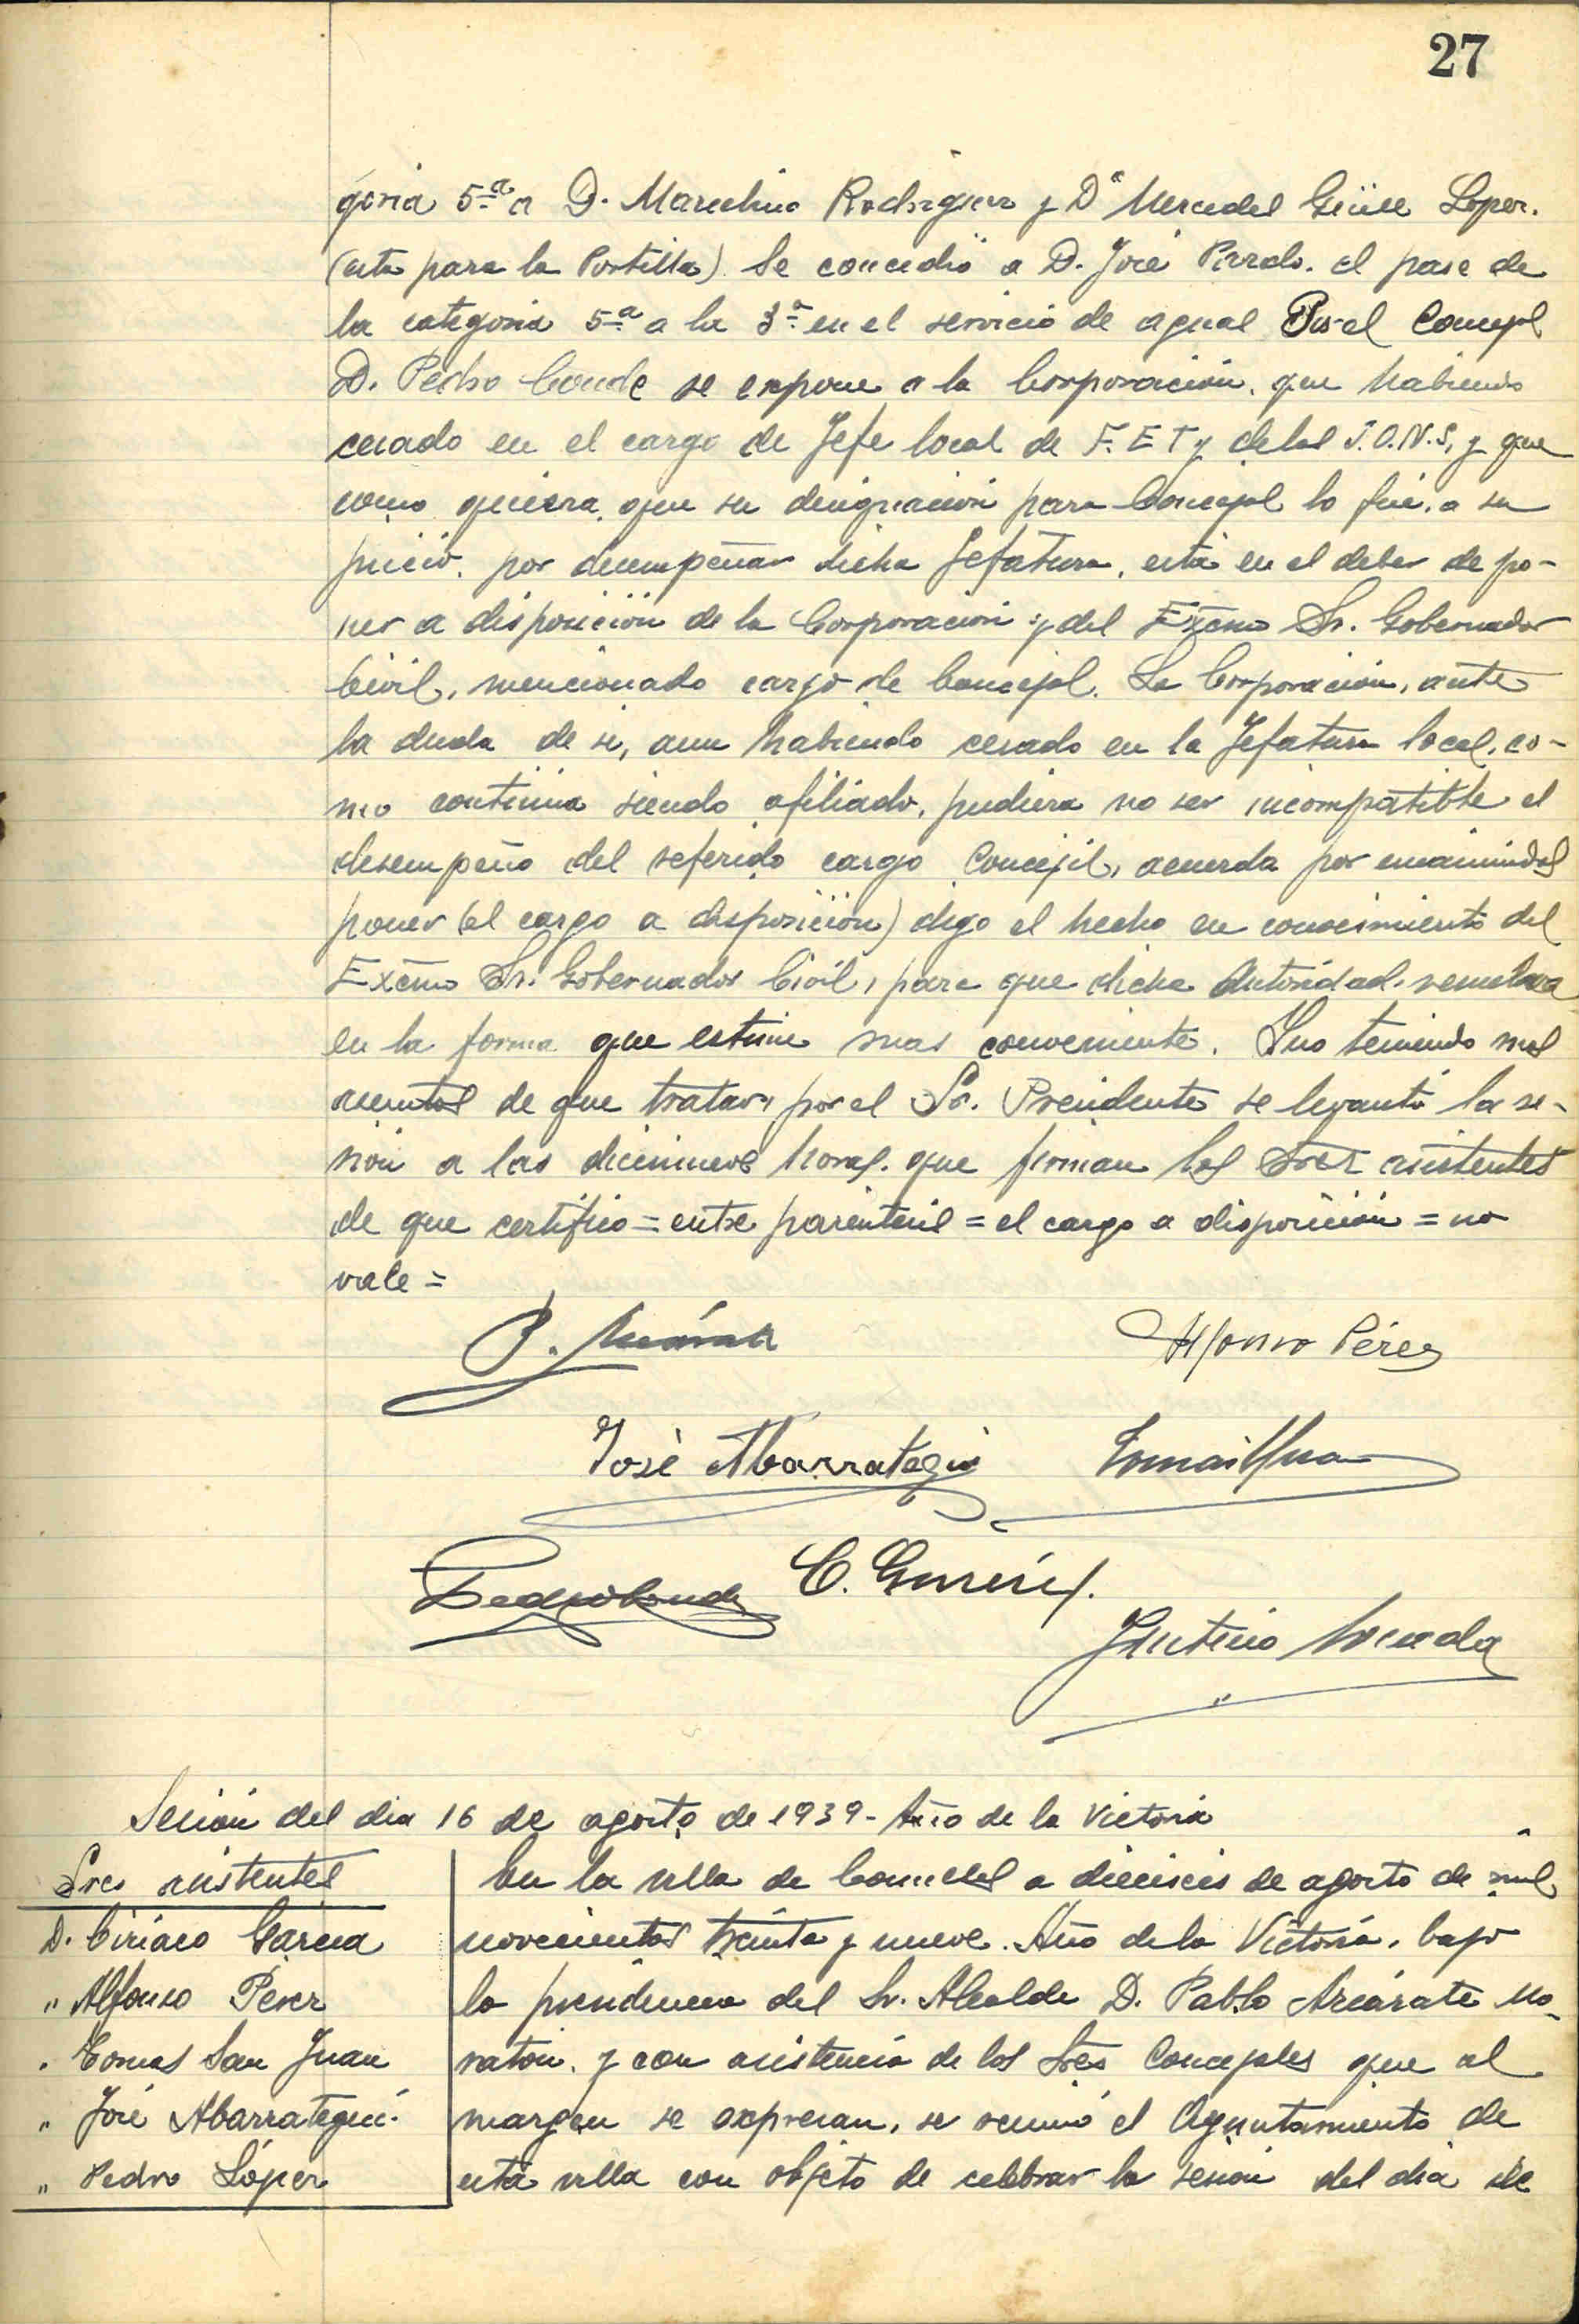 27
goria 5ª a D. Marcelino Rodriguez y Dª Mercedes Güell Lopez.
(esta para la Portilla). Se concedió a D. José Pardo. el pase de
la categoria 5ª a la 3ª en el servicio de aguas Por el Concejal
D. Pedro Conde se expone a la Corporación, que habiendo
cesado en el cargo de Jefe local de F. E T y de las J.O.N.S, y que
como quiera que su designación para Concejal lo fué, a su
juicio, por desempeñar dicha Jefatura, está en el deber de po-
ner a disposición de la Corporación y del Excmo Sr. Gobernador
Civil, mencionado cargo de Concejal. La Corporación, ante
la duda de si, aun habiendo cesado en la Jefatura local, co-
mo continua siendo afiliado, pudiera no ser incompatible el
desempeño del referido cargo Concejil, acuerda por unanimidad
poner (el cargo a disposición) digo el hecho en conocimiento del
Excmo Sr. Gobernador Civil, para que dicha Autoridad resuelva
en la forma que estime mas conveniente. Y no teniendo mas
asuntos de que tratar, por el Sr. Presidente se levantó la se-
sión a las diecinueve horas. que firman los Sres asistentes
de que certifico = entre parentesis = el cargo a disposición = no
vale =
Alfonso Pérez
José Abarrategui Tomás S Juan
Pedro Conde C. García
Quesada
Sesión del dia 16 de agosto de 1939 - Año de la Victoria
Sres asistentes
D. Ciriaco Garcia
" Alfonso Perez
" Tomas San Juan
" José Abarrategui.
" Pedro López
En la villa de a dieciseis de agosto de mil
novecientos treinta y nueve. Año de la Victoria, bajo
la presidencia del Sr. Alcalde D. Pablo Arcárate Mo-
ratón. y con asistencia de los Sres Concejales que al
margen se expresan, se reunió el Ayuntamiento de
esta villa con objeto de celebrar la sesión del dia de